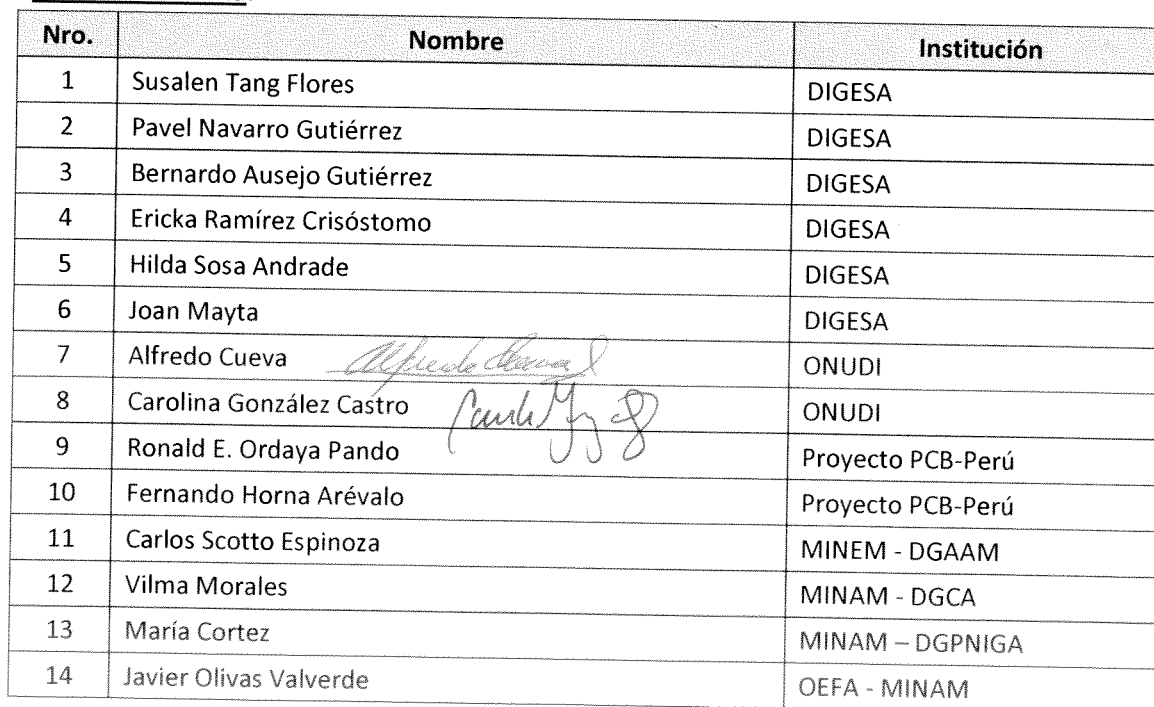 Nro. Nombre Institución
1 Susalen Tang Flores DIGESA
2 Pavel Navarro Gutiérrez DIGESA
3 Bernardo Ausejo Gutiérrez DIGESA
4 Ericka Ramírez Crisóstomo DIGESA
5 Hilda Sosa Andrade DIGESA
6 Joan Mayta DIGESA
7 Alfredo Cueva ONUDI
8 Carolina González Castro ONUDI
9 Ronald E. Ordaya Pando Proyecto PCB-Perú
10 Fernando Horna Arévalo Proyecto PCB-Perú
11 Carlos Scotto Espinoza MINEM - DGAAM
12 Vilma Morales MINAM - DGCA
13 María Cortez MINAM – DGPNIGA
14 Javier Olivas Valverde OEFA - MINAM